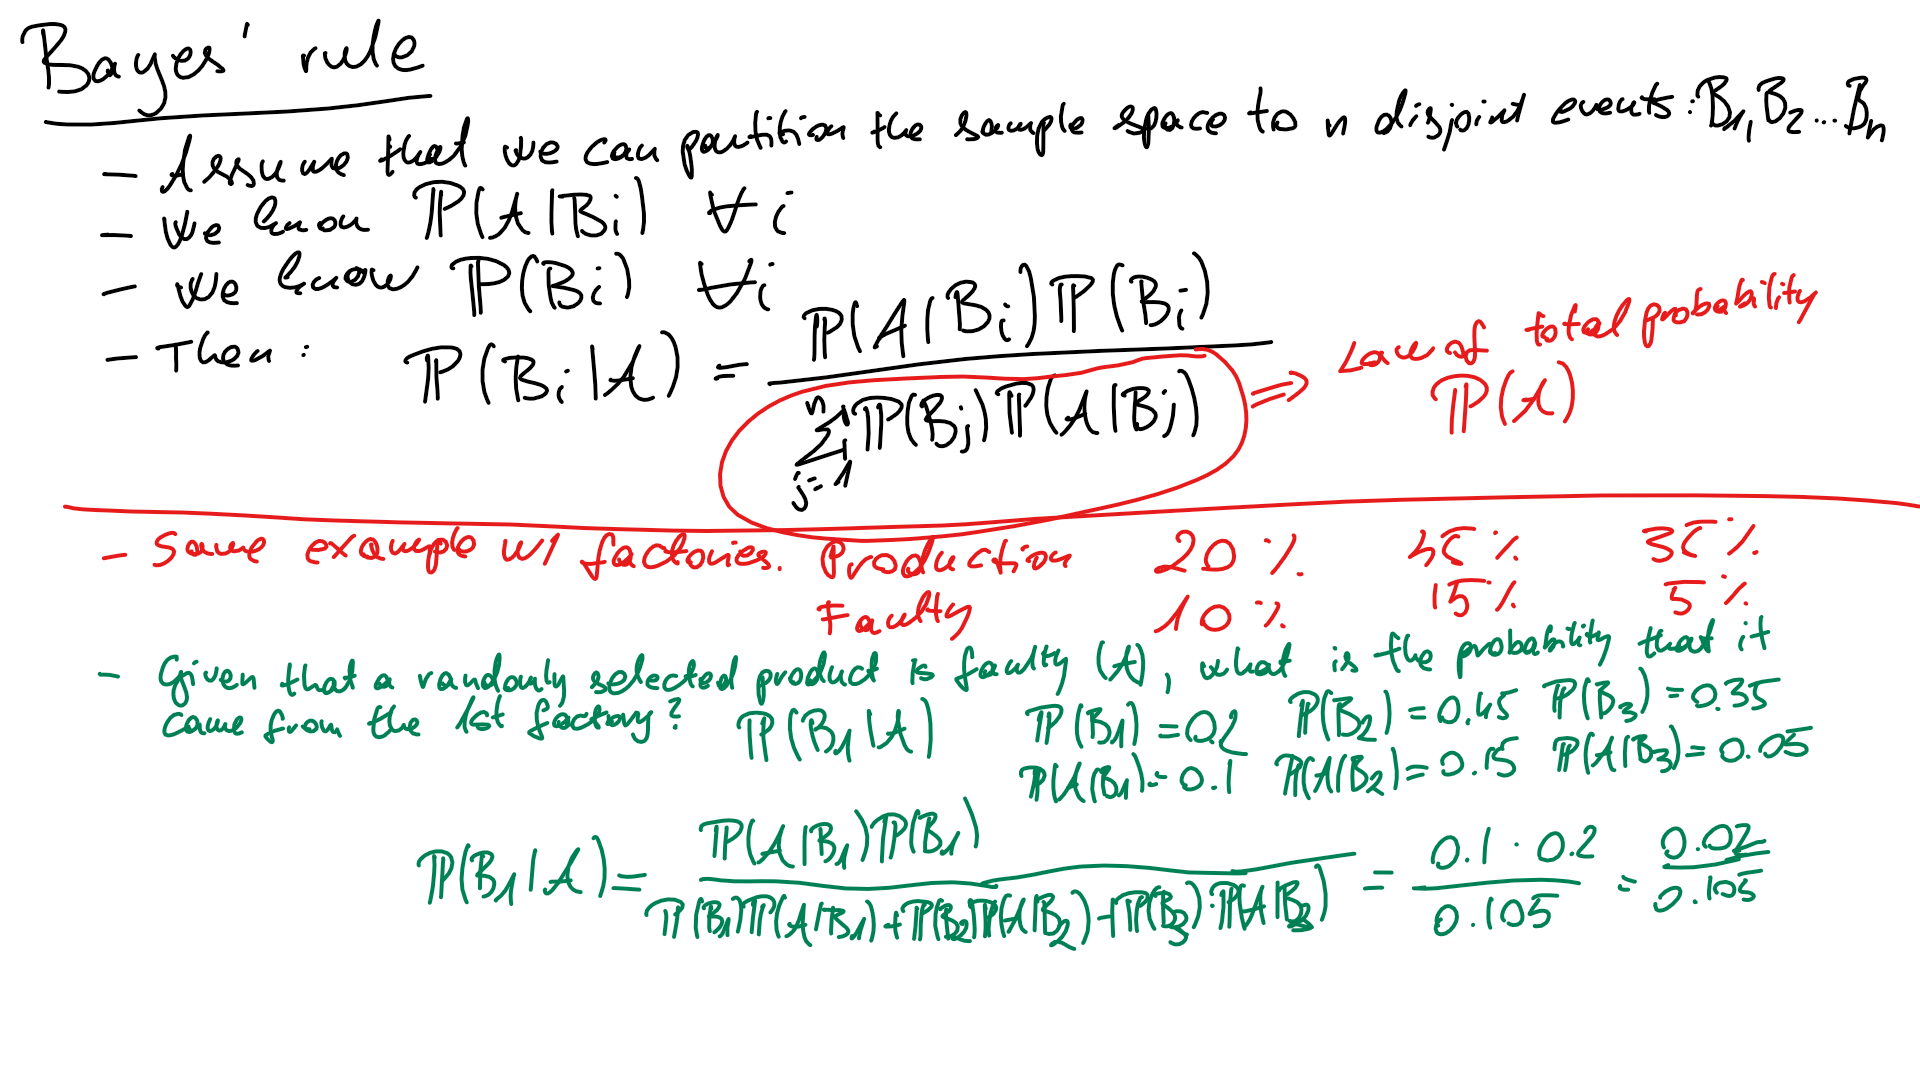 Bayes' rule
- Assume that we can partition the sample space to n disjoint events: B₁, B₂ ... Bₙ
- We know ℙ(A|Bᵢ) ∀ i
- We know ℙ(Bᵢ) ∀i
- Then: ℙ(Bᵢ|A) = ℙ(A|Bᵢ)ℙ(Bᵢ) / ∑ⁿⱼ₌₁ ℙ(Bⱼ)ℙ(A|Bⱼ) ⇒ Law of total probability ℙ(A)
- Same example w/ factories. Production 20% 45% 35%
Faulty 10% 15% 5%
- Given that a randomly selected product is faulty (A), what is the probability that it
came from the 1st factory? ℙ(B₁|A) ℙ(B₁)=0.2 ℙ(B₂)=0.45 ℙ(B₃)=0.35
ℙ(A|B₁)=0.1 ℙ(A|B₂)=0.15 ℙ(A|B₃)=0.05
ℙ(B₁|A)= ℙ(A|B₁)ℙ(B₁) / ℙ(B₁)ℙ(A|B₁)+ℙ(B₂)ℙ(A|B₂)+ℙ(B₃)·ℙ(A|B₃) = 0.1 · 0.2 / 0.105 = 0.02 / 0.105